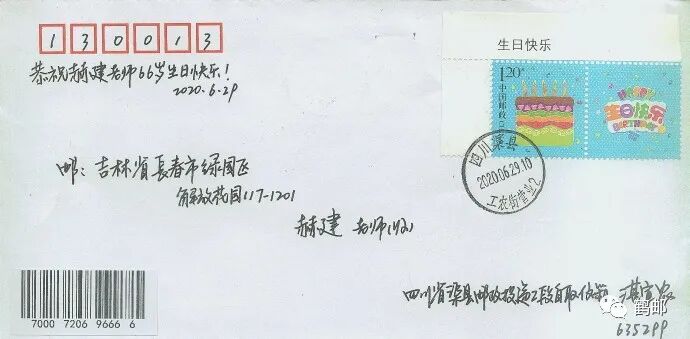 130013
恭祝赫建老师66岁生日快乐!
2020.6.29
生日快乐
1.20元
中国邮政
HAPPY
生日快乐
BIRTHDAY
四川渠县
2020.06.29.10
工农街营业2
邮: 吉林省长春市绿园区
解放花园117-1201
赫建 老师(收)
7000 7206 9666 6
四川省渠县邮政投递二段自取信箱
635299
鹤邮